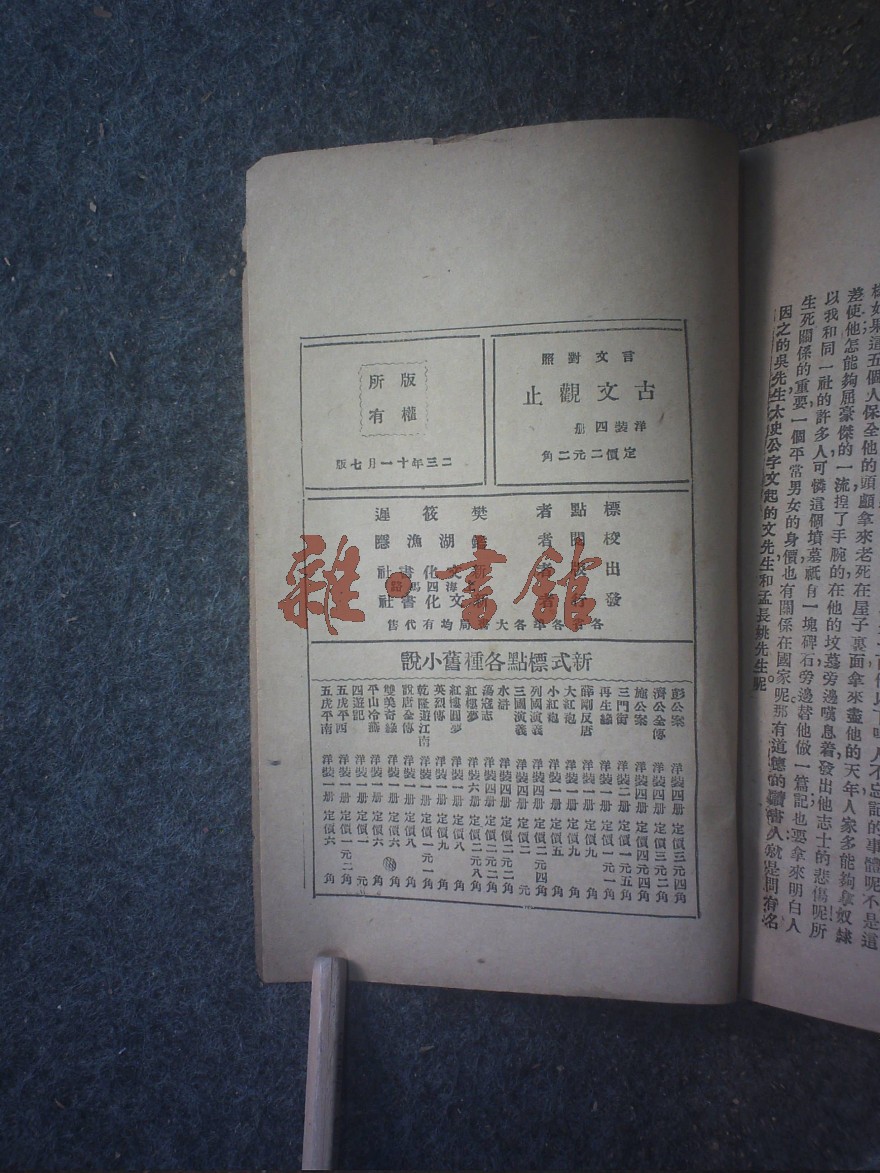 言文對照
古文觀止
洋裝四册
定價二元二角
版權
所有
二三年十一月七版
標點者 樊筱遲
校閱者 鑑湖漁隱
出版者 新文化書社
上海四馬路
發行者 新文化書社
各省各埠各大書局均有代售
新式標點各種舊小說
彭公案 洋裝四册 定價三元四角
濟公全傳 洋裝四册 定價三元二角
施公案 洋裝四册 定價四元四角
三門街 洋裝二册 定價一元五角
再生緣 洋裝四册 定價一元一角
薛剛反唐 洋裝一册 定價九角
大紅袍 洋裝一册 定價九角
小紅袍 洋裝一册 定價五角
列國演義 洋裝四册 定價二元四角
三國演義 洋裝四册 定價二元
水滸 洋裝四册 定價二元二角
蕩寇志 洋裝四册 定價二元二角
紅樓夢 洋裝六册 定價二元八角
紅樓圓夢 洋裝一册 定價八角
英烈傳 洋裝一册 定價八角
乾隆遊江南 洋裝一册 定價一元一角
說唐全傳 洋裝一册 定價八角
雙美奇緣 洋裝一册 定價六角
平山冷燕 洋裝一册 定價六角
四遊記 洋裝一册 定價一元
五虎平西 洋裝一册 定價一元二角
五虎平南 洋裝一册 定價六角
樣如果這五個人保全他的頭顱拿來老死在屋子裏面拿來盡他的天年人家多能夠拿奴隸
差使他怎能夠屈豪傑的一流揑了手腕的在他的坟墓旁邊嘆息着發出他志士的悲傷呢所
以我和同一社的許多人可憐這個墳墓祇有一塊碑石旁邊替他做一篇記也要拿來明白人
生死關係的重要一個平常男女的身價也有關係在國家呢那有道德的讀書人就是問有名
因之的吳先生太史公字文起的文先生和孟長姚先生呢
雜·書館